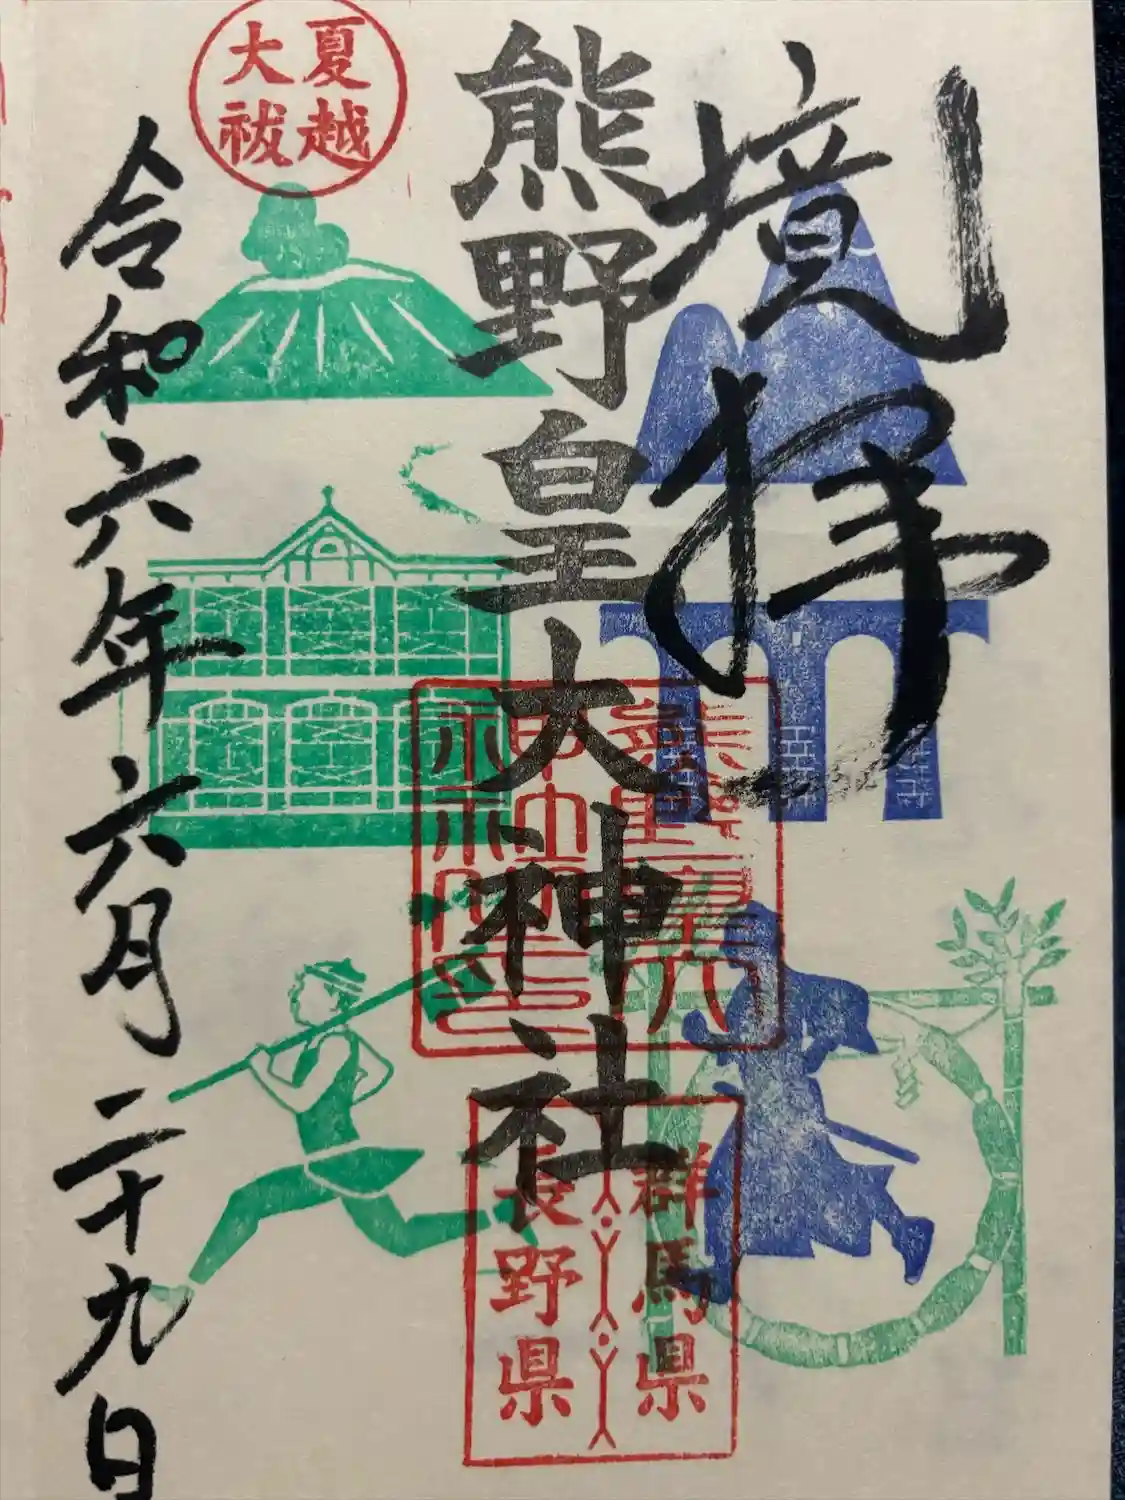 境拝
熊野皇大神社
群馬県
長野県
夏越
大祓
令和六年六月二十九日